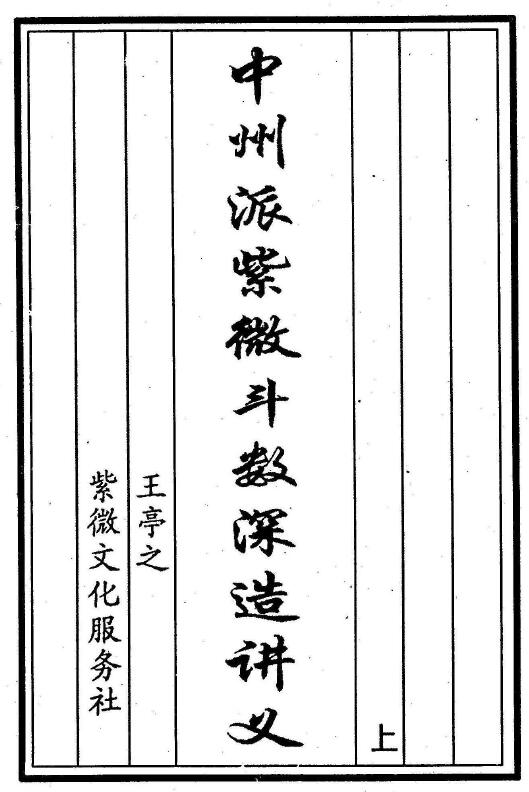 上
中州派紫微斗数深造讲义
王亭之
紫微文化服务社